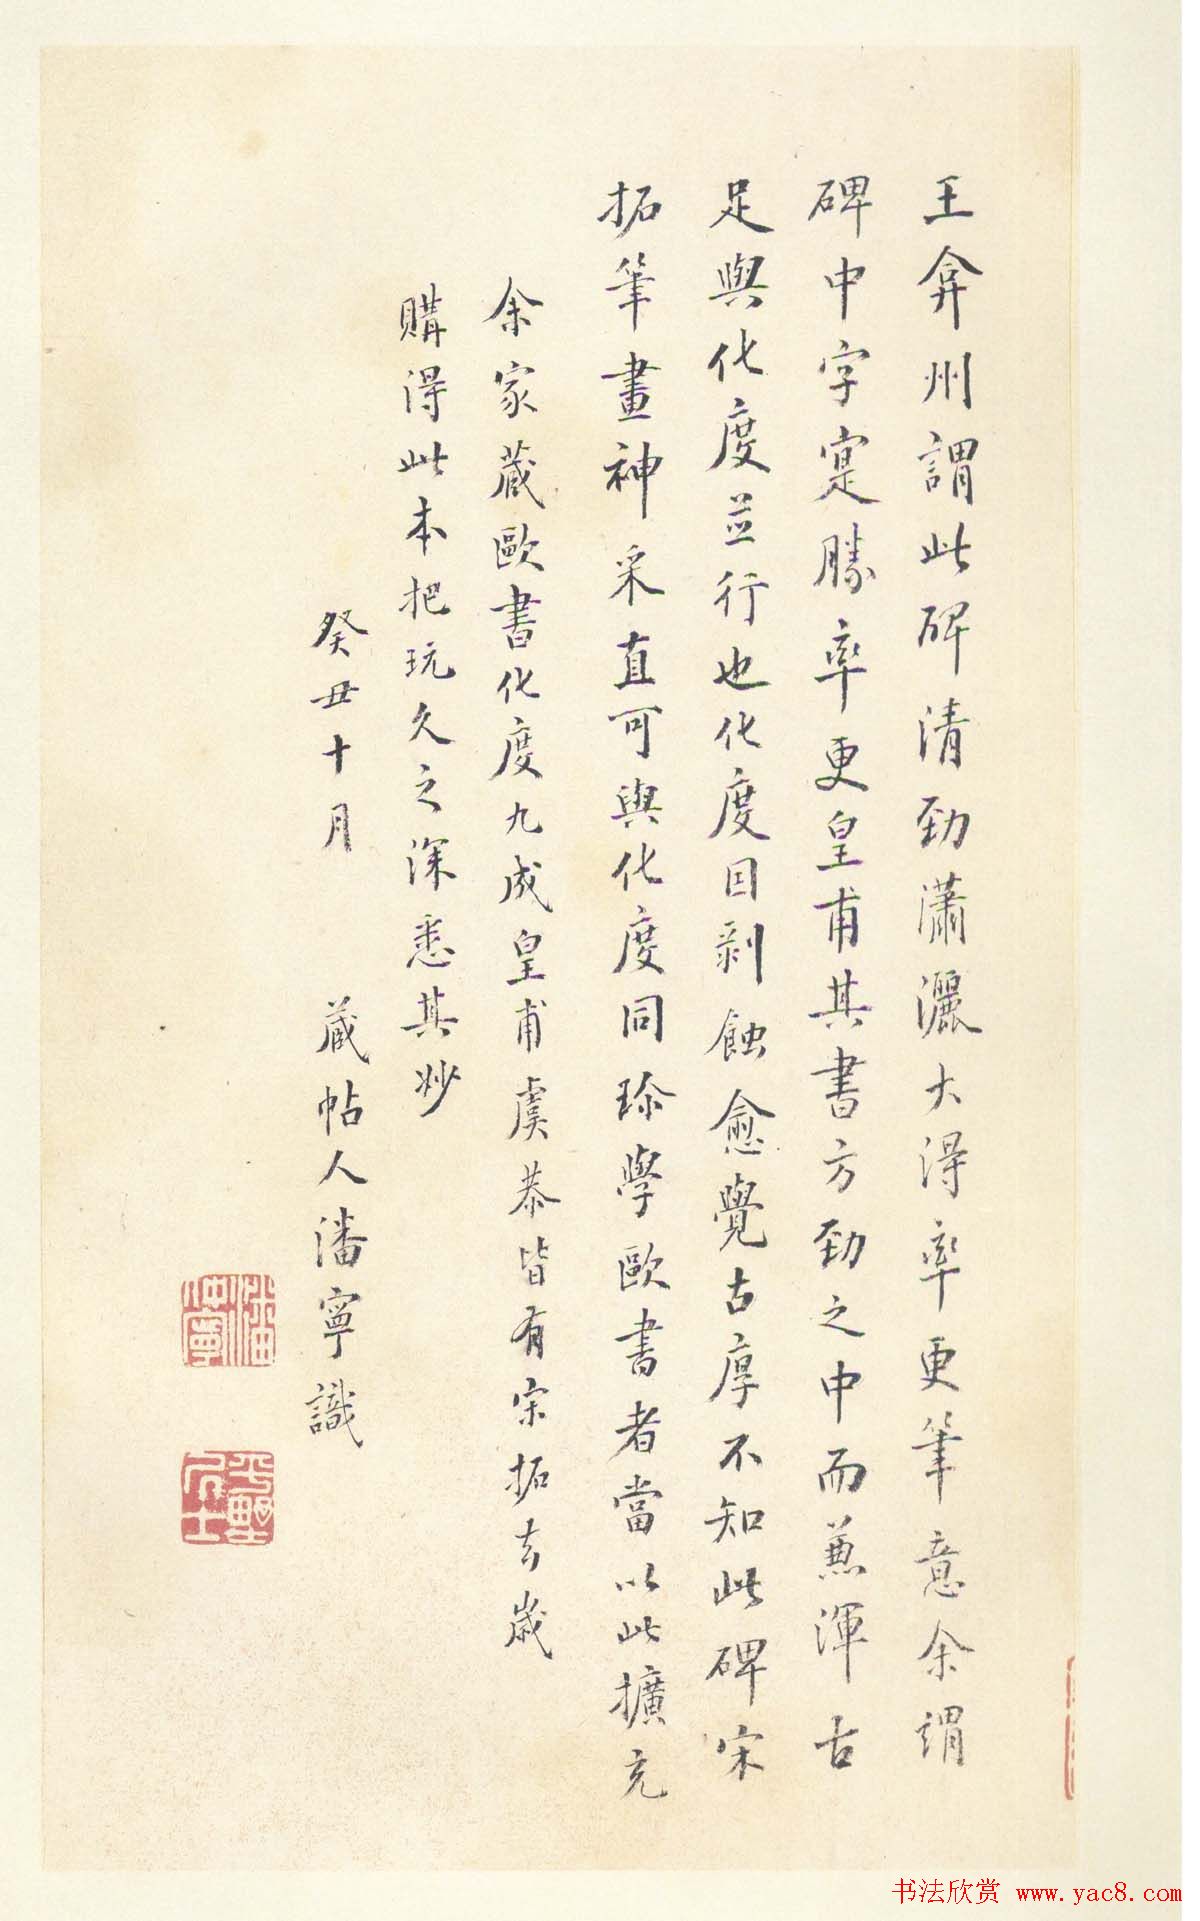 王弇州謂此碑清勁瀟灑大得率更筆意余謂
碑中字寔勝率更皇甫其書方勁之中而兼渾古
足與化度並行也化度因剥蝕愈覺古厚不知此碑宋
拓筆畫神采直可與化度同珍學歐書者當以此擴充
余家藏歐書化度九成皇甫虞恭皆有宋拓去歲
購得此本把玩久之深悉其妙
癸丑十月
藏帖人潘寧識
潘寧
居士
书法欣赏 www.yac8.com